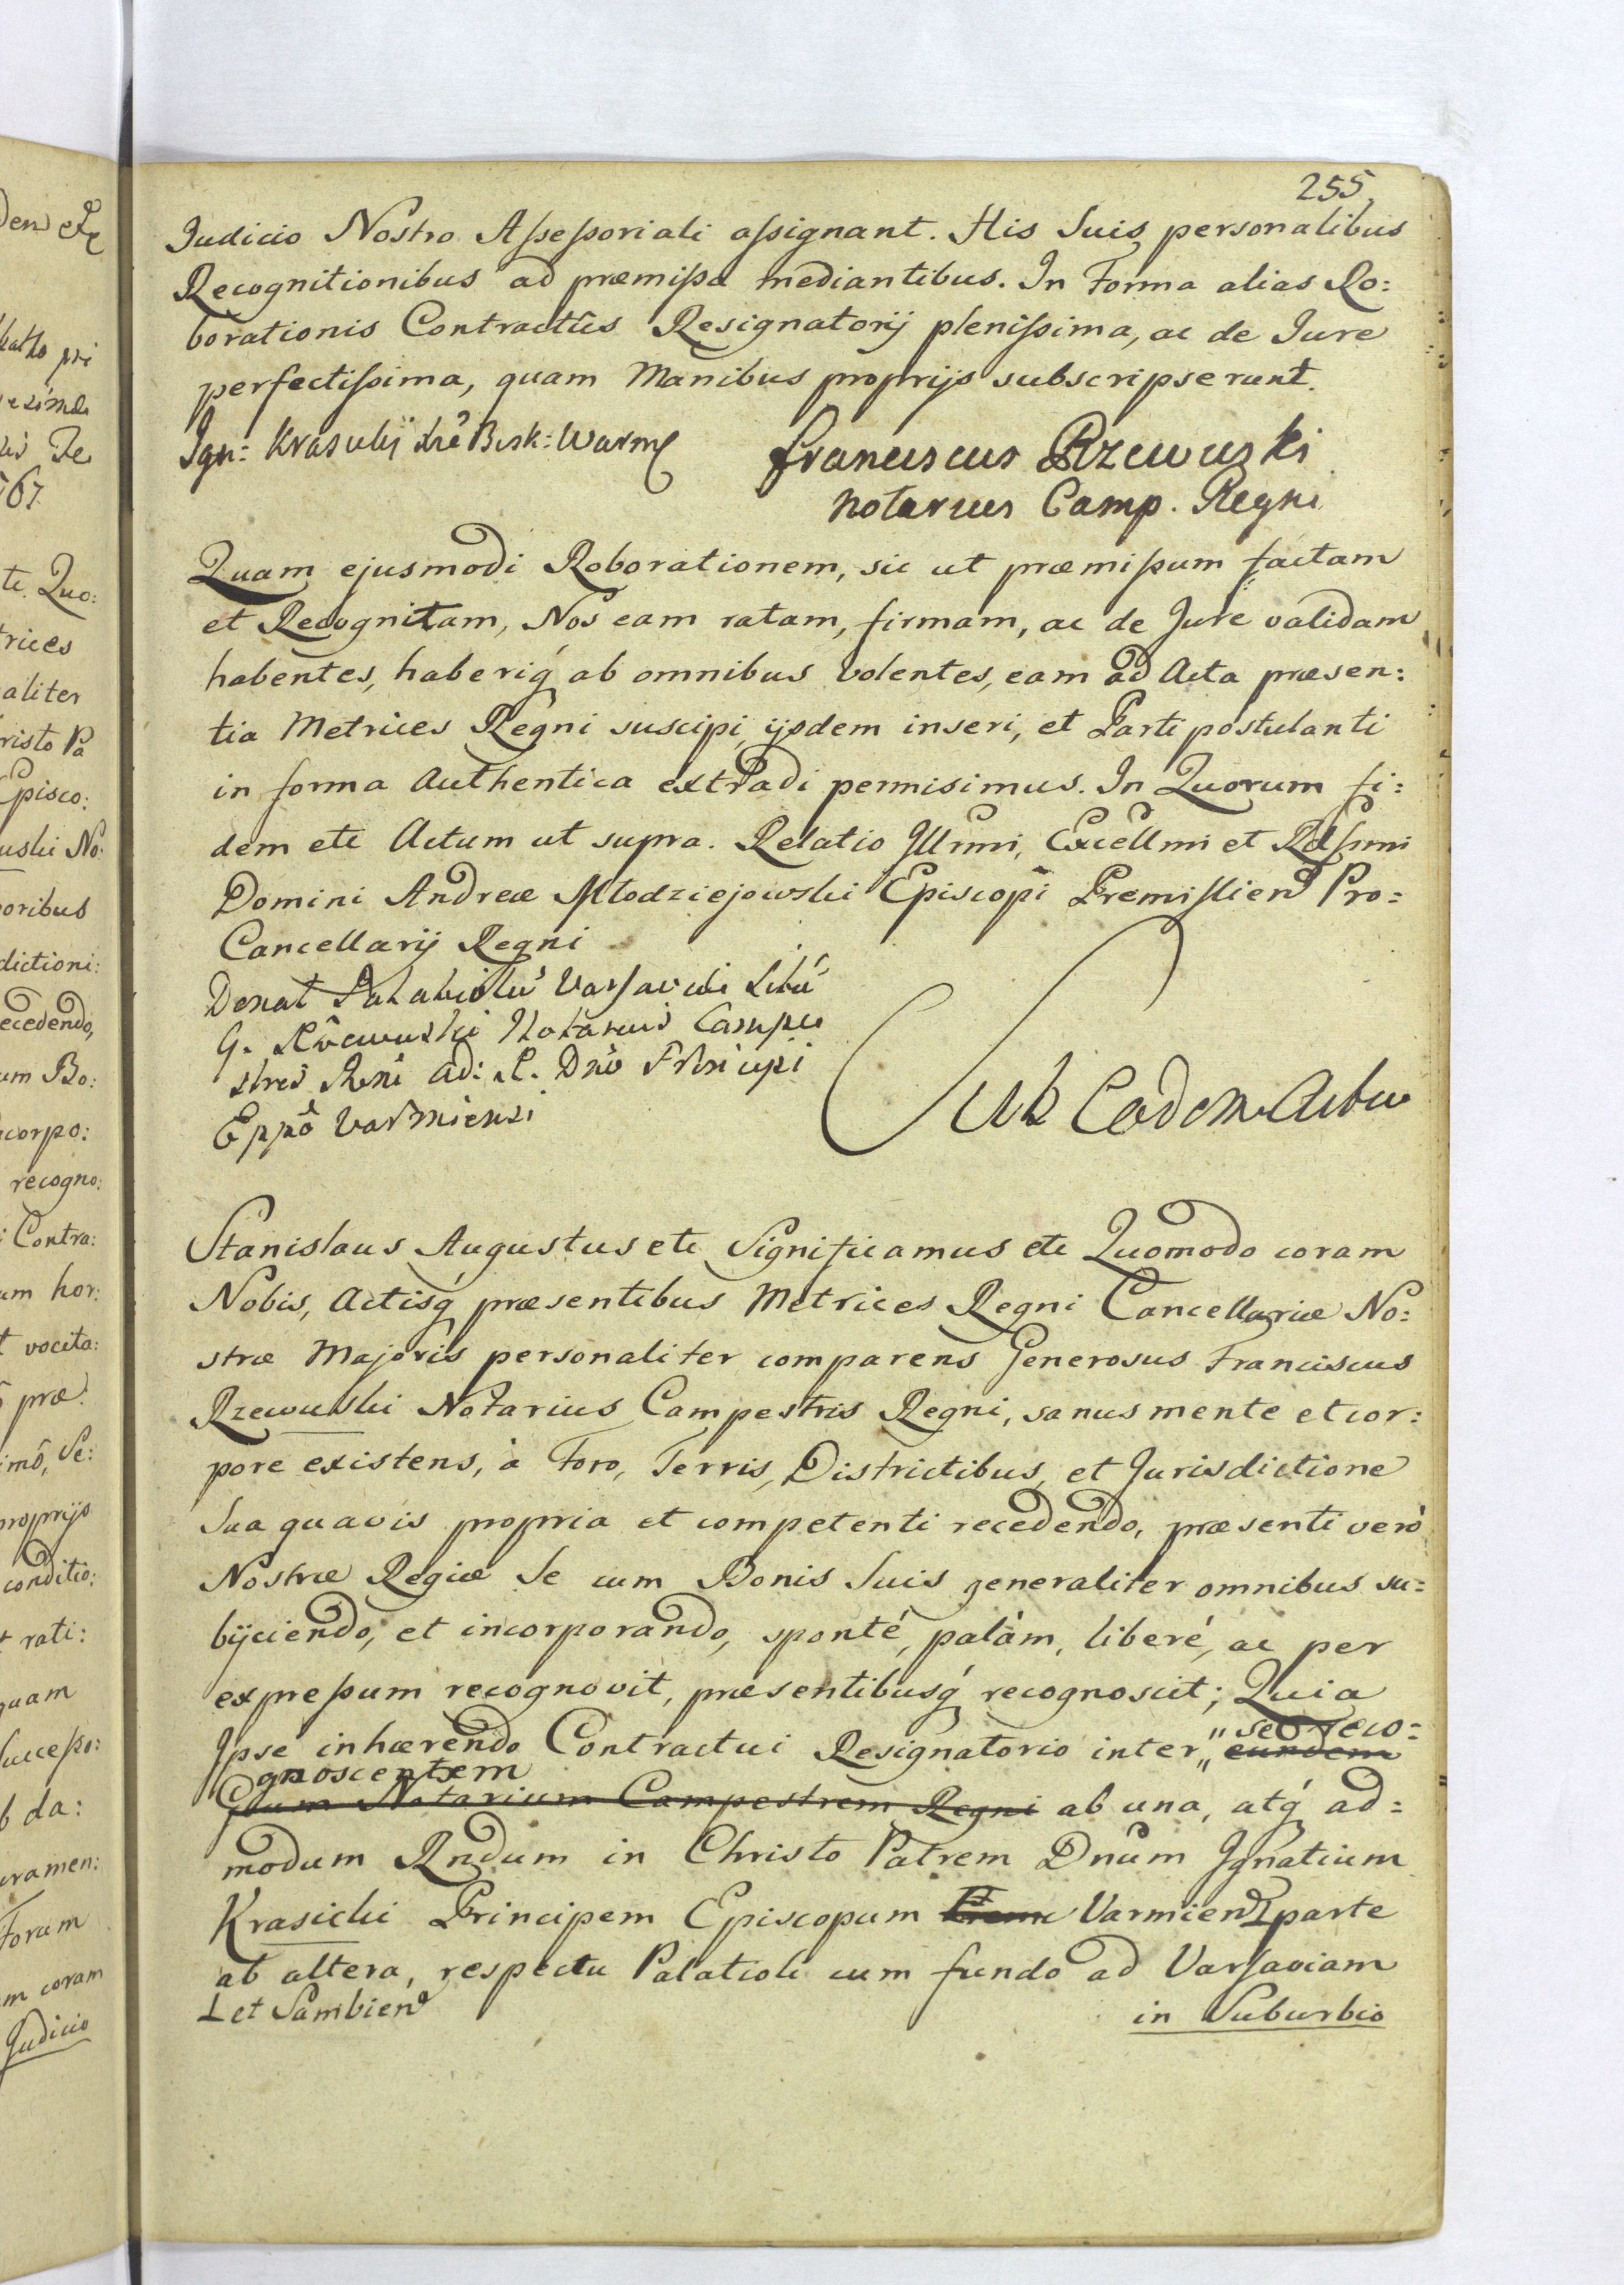 255
Judicio Nostro Aſseſsoriali aſsignant. His Suis personalibus
Recognitionibus ad præmiſsa mediantibus. In Forma alias Ro:
borationis Contractûs Resignatorij pleniſsima, ac de Jure
perfectiſsima, quam Manibus proprijs subscripserunt.
Ign: Krasicky Bisk: Warm
Franciscus Rzewuski
Notarius Camp. Regni
Quam ejusmodi Roborationem, sic ut præmiſsum factam
et Recognitam, Nos eam ratam, firmam, ac de Jure validam
habentes, haberiq́ ab omnibus volentes, eam ad Acta præsen:
tia Metrices Regni suscipi, ijsdem inseri, et Parti postulanti
in forma Authentica extradi permisimus. In Quorum fi:
dem etc Actum ut supra. Relatio Illmi, Excellmi et Rdſsimi
Domini Andreæ Młodziejowski Episcopi Premislien Pro=
Cancellarij Regni
Donat Palatiolũ Varſavĩæ Sitũ
G. Rzewuski Notarius Campe
stris Regni ad: R. Dno Principi
Eppõ Varmiensi
Sub Eodem Actu
Stanislaus Augustus etc Significamus etc Quomodo coram
Nobis, Actisq́ præsentibus Metrices Regni Cancellariæ No:
stræ Majoris personaliter comparens Generosus Franciscus
Rzewuski Notarius Campestris Regni, sanus mente et cor:
pore existens, à Foro, Terris, Districtibus, et Jurisdictione
Sua quavis propria et competenti recedendo, præsenti verò
Nostræ Regiæ Se cum Bonis Suis generaliter omnibus su=
bijciendo, et incorporando, sponté, palàm, liberé, ac per
expreſsum recognovit, præsentibusq́ recognoscit; Quia
Ipse inhærendo Contractui Resignatorio inter „ se reco=
„ eundem
gnoscentem
ipsum Notarium Campestrem Regni ab una, atq́ ad=
modum Rndum in Christo Patrem Dnum Ignatium
Krasicki Principem Episcopum Prem Varmien ⊥ parte
ab altera, respectu Palatioli cum fundo ad Varſaviam
⊥ et Sambien
in Suburbio